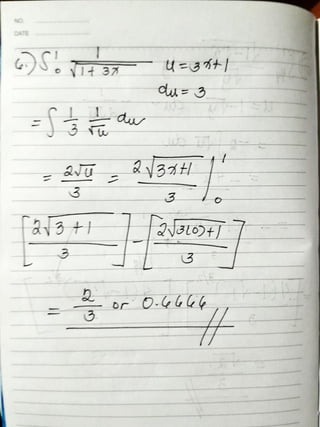 NO.
DATE
6.) ∫₀¹ 1/√(1+3x) u = 3x+1
du = 3
= ∫ 1/3 1/√u du
= 2√u/3 = 2√(3x+1)/3 |₀¹
[2√(3+1)/3] - [2√(3(0)+1)/3]
= 2/3 or 0.6666